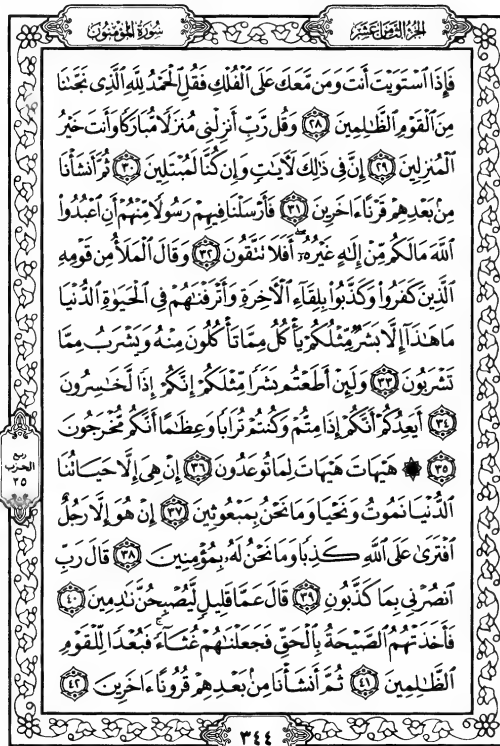 الجُزْءُ الثَّامِنَ عَشَرَ
سُورَةُ المُؤْمِنُونَ
فَإِذَا ٱسْتَوَيْتَ أَنتَ وَمَن مَّعَكَ عَلَى ٱلْفُلْكِ فَقُلِ ٱلْحَمْدُ لِلَّهِ ٱلَّذِى نَجَّىٰنَا
مِنَ ٱلْقَوْمِ ٱلظَّٰلِمِينَ ٢٨ وَقُل رَّبِّ أَنزِلْنِى مُنزَلًا مُّبَارَكًا وَأَنتَ خَيْرُ
ٱلْمُنزِلِينَ ٢٩ إِنَّ فِى ذَٰلِكَ لَءَايَٰتٍ وَإِن كُنَّا لَمُبْتَلِينَ ٣٠ ثُمَّ أَنشَأْنَا
مِنۢ بَعْدِهِمْ قَرْنًا ءَاخَرِينَ ٣١ فَأَرْسَلْنَا فِيهِمْ رَسُولًا مِّنْهُمْ أَنِ ٱعْبُدُوا۟
ٱللَّهَ مَا لَكُم مِّنْ إِلَٰهٍ غَيْرُهُۥٓ أَفَلَا تَتَّقُونَ ٣٢ وَقَالَ ٱلْمَلَأُ مِن قَوْمِهِ
ٱلَّذِينَ كَفَرُوا۟ وَكَذَّبُوا۟ بِلِقَآءِ ٱلْءَاخِرَةِ وَأَتْرَفْنَٰهُمْ فِى ٱلْحَيَوٰةِ ٱلدُّنْيَا
مَا هَٰذَآ إِلَّا بَشَرٌ مِّثْلُكُمْ يَأْكُلُ مِمَّا تَأْكُلُونَ مِنْهُ وَيَشْرَبُ مِمَّا
تَشْرَبُونَ ٣٣ وَلَئِنْ أَطَعْتُم بَشَرًا مِّثْلَكُمْ إِنَّكُمْ إِذًا لَّخَٰسِرُونَ
٣٤ أَيَعِدُكُمْ أَنَّكُمْ إِذَا مِتُّمْ وَكُنتُمْ تُرَابًا وَعِظَٰمًا أَنَّكُم مُّخْرَجُونَ
٣٥ ۞ هَيْهَاتَ هَيْهَاتَ لِمَا تُوعَدُونَ ٣٦ إِنْ هِىَ إِلَّا حَيَاتُنَا
ٱلدُّنْيَا نَمُوتُ وَنَحْيَا وَمَا نَحْنُ بِمَبْعُوثِينَ ٣٧ إِنْ هُوَ إِلَّا رَجُلٌ
ٱفْتَرَىٰ عَلَى ٱللَّهِ كَذِبًا وَمَا نَحْنُ لَهُۥ بِمُؤْمِنِينَ ٣٨ قَالَ رَبِّ
ٱنصُرْنِى بِمَا كَذَّبُونِ ٣٩ قَالَ عَمَّا قَلِيلٍ لَّيُصْبِحُنَّ نَٰدِمِينَ ٤٠
فَأَخَذَتْهُمُ ٱلصَّيْحَةُ بِٱلْحَقِّ فَجَعَلْنَٰهُمْ غُثَآءً فَبُعْدًا لِّلْقَوْمِ
ٱلظَّٰلِمِينَ ٤١ ثُمَّ أَنشَأْنَا مِنۢ بَعْدِهِمْ قُرُونًا ءَاخَرِينَ ٤٢
ربع
الحزب
٣٥
٣٤٤